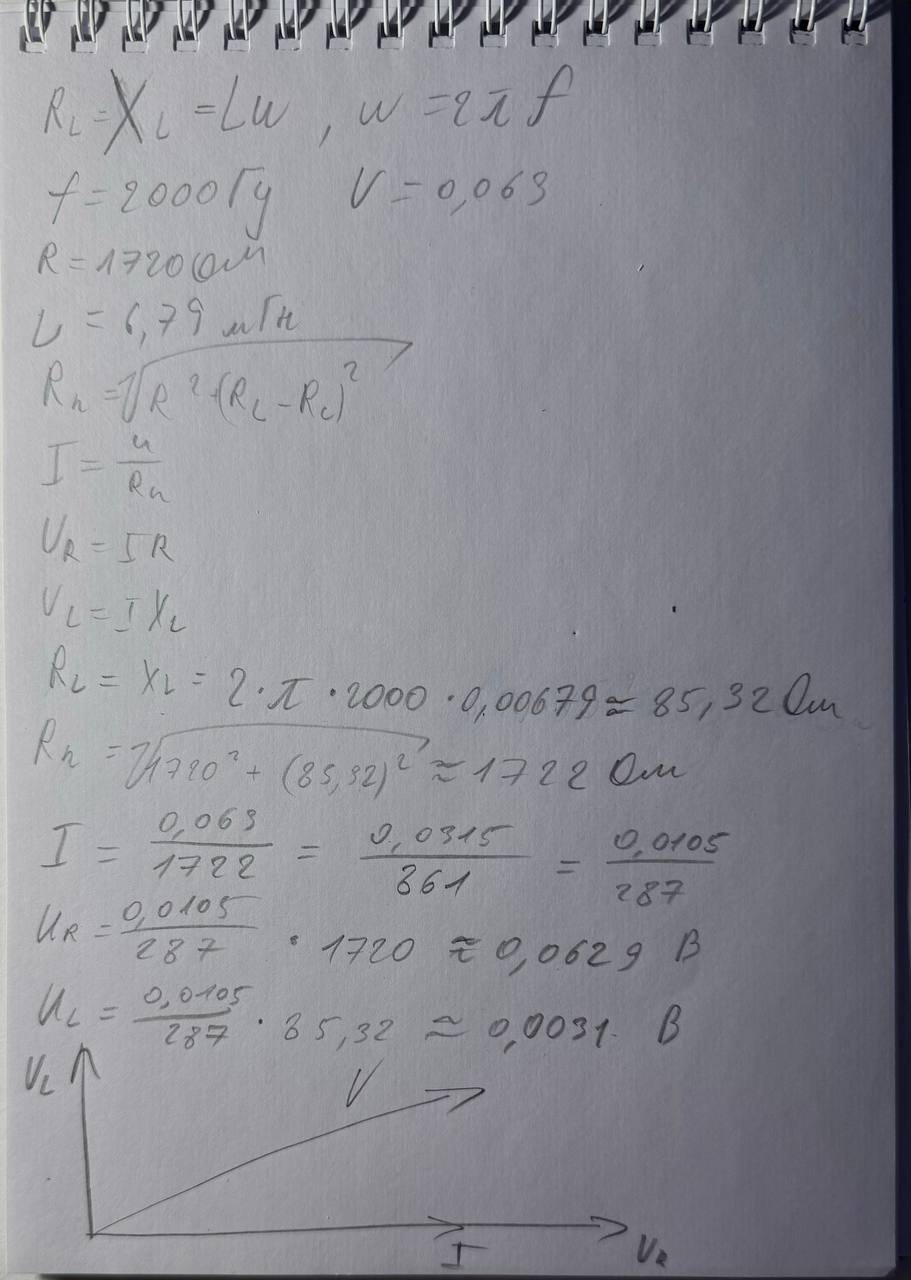 R_L = X_L = Lω , ω = 2πf
f = 2000 Гц V = 0,063
R = 1720 Ом
L = 6,79 мГн
R_п = √(R² + (R_L - R_C)²)
I = u/R_п
U_R = IR
V_L = I X_L
R_L = X_L = 2·π·2000·0,00679 ≈ 85,32 Ом
R_п = √(1720² + (85,32)²) ≈ 1722 Ом
I = 0,063/1722 = 0,0315/861 = 0,0105/287
U_R = 0,0105/287 · 1720 ≈ 0,0629 В
U_L = 0,0105/287 · 85,32 ≈ 0,0031 В
V_L V
I V_R